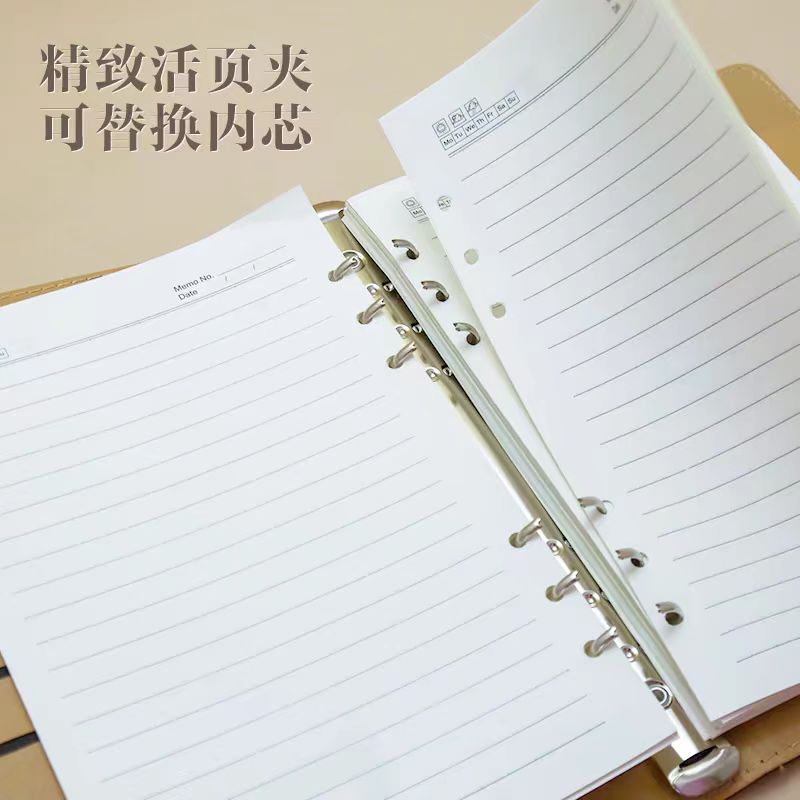 精致活页夹
可替换内芯
Memo No.
Date / /
Mo Tu We Th Fr Sa Su